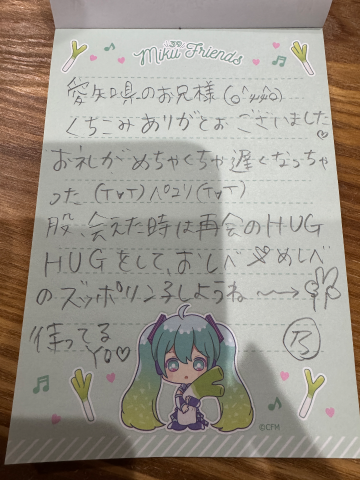 Miku Friends
愛知県のお兄様(o^ω^o)
くちこみありがとおございました♡
お礼がめちゃくちゃ遅くなっちゃ
った(T▽T)ペコリ(T▽T)
股、会えた時は再会のHUG
HUGをして、おしべ めしべ
のズッポリン子しようね 〜〜→
待ってる
YO♡
©CFM